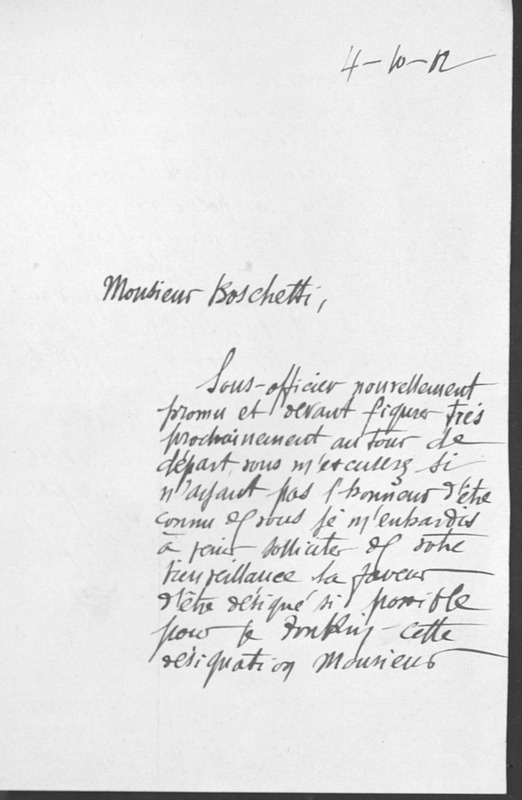 4-10-12
Monsieur Boschetti,
Sous-officier nouvellement
promu et devant figurer très
prochainement au tour de
départ, vous m'excuserez si
n'ayant pas l'honneur d'être
connu de vous je m'enhardis
à venir solliciter de votre
bienveillance la faveur
d'être désigné si possible
pour le Tonkin - cette
désignation Monsieur